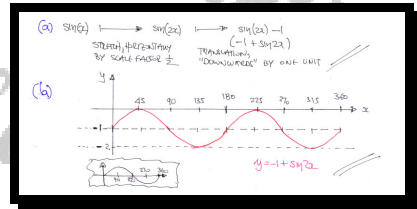 (a) sin(x) ⟼ sin(2x) ⟼ sin(2x) −1
(−1 + sin2x)
STRETCH, HORIZONTALLY
BY SCALE FACTOR 1/2
TRANSLATION,
"DOWNWARDS" BY ONE UNIT
(b)
y
45 90 135 180 225 270 315 360 x
-1
-2
y = -1 + sin2x
90 180 270 360